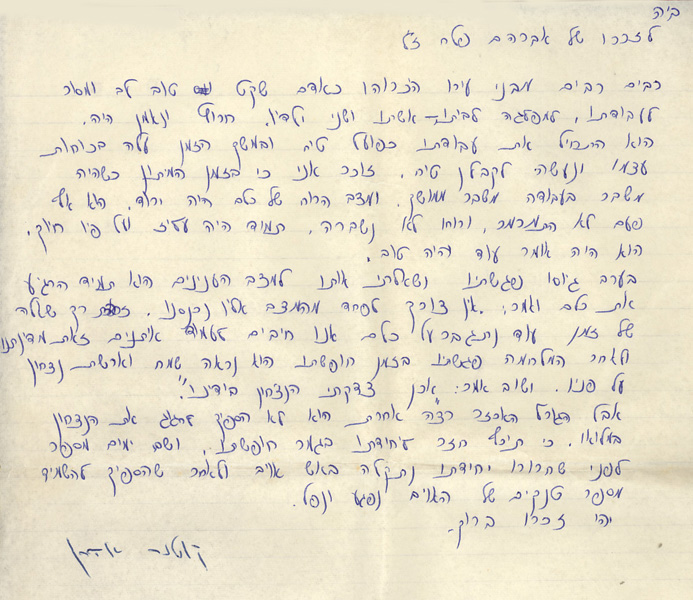 ב"ה
לזכרו של אברהם ז"ל
רבים רבים מבני עירו הכרוהו כאדם שקט טוב לב ומסור
לעבודתו, למפלגה לביתו – אשתו ושני ילדיו. חרוץ ונאמן היה.
הוא התחיל את עבודתו כפועל טיח ובמשך הזמן עלה בכוחות
עצמו ונעשה לקבלן טיח. זוכר אני כי בזמן המיתון כשהיה
משבר בעבודה משבר ממושך, ומצב הרוח של כולם היה ירוד, הוא אף
פעם לא התמרמר, ורוחו לא נשברה, תמיד היה עליז ועל פיו חיוך,
הוא היה אומר עוד יהיה טוב.
בערב גיוסו פגשתיו ושאלתי אותו למצב הענינים הוא תמיד הרגיע
את כולם ואמר: אין צורך לפחד מהמצב אליו נכנסנו. זאת רק שאלה
של זמן עוד נתגבר על כולם אנו חייבים לעמוד איתנים זאת מדינתנו
ולאחר המלחמה פגשתיו בזמן חופשתו הוא נראה שמח וארשת נצחון
על פניו. ושוב אמר: אכן צדקתי הנצחון בידינו!".
אבל הגורל האכזר רצה אחרת הוא לא הספיק לחגוג את הנצחון
במלואו. כי תיכף חזר ליחידתו בגמר חופשתו, ושם ימים מספר
לפני שחרורו יחידתו נתקלה באש אויב ולאחר שהספיק להשמיד
מספר טנקים של האויב נפגע ונפל.
יהי זכרו ברוך.